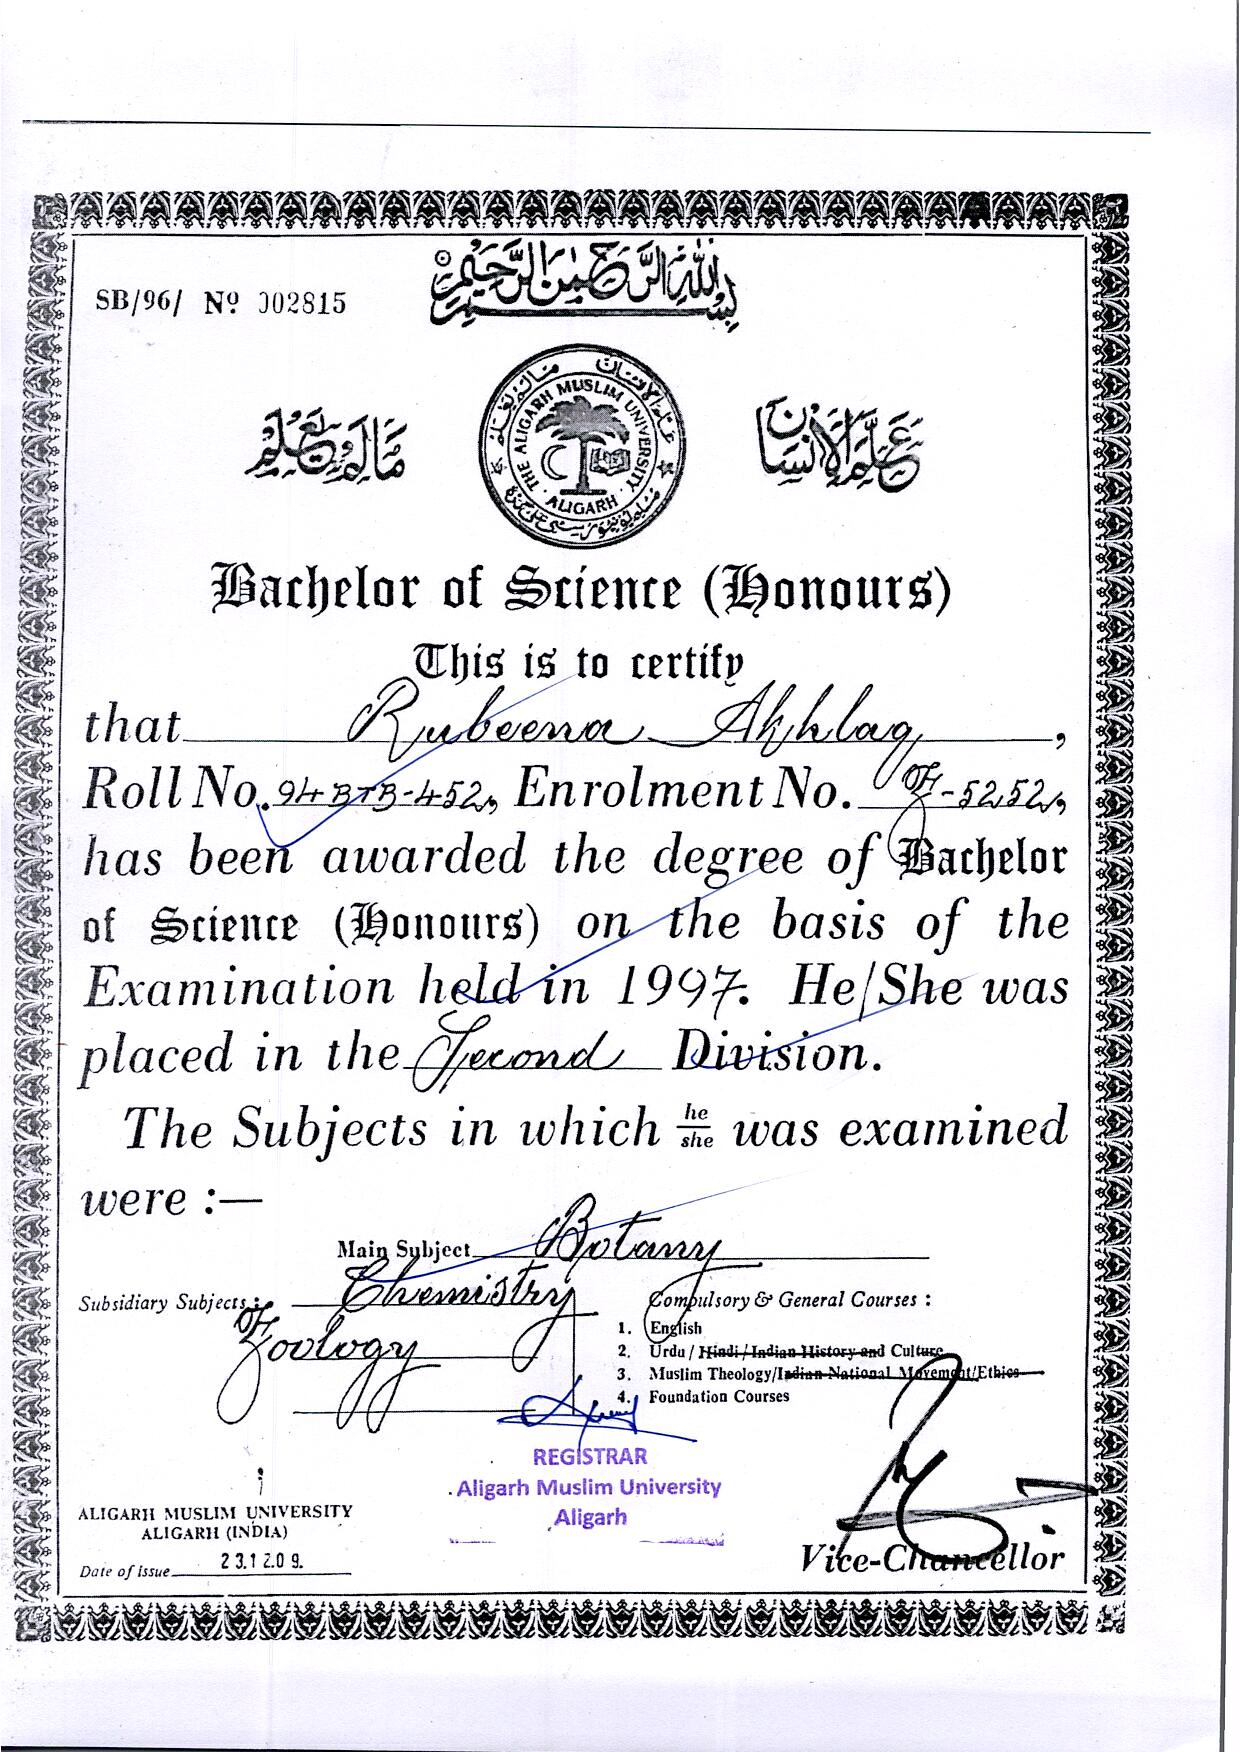 SB/96/ Nº 002815
بسم الله الرحمن الرحيم
علم الانسان
مالم يعلم
علم الانسان مالم يعلم
THE ALIGARH MUSLIM UNIVERSITY
ALIGARH
Bachelor of Science (Honours)
This is to certify
that Rubeena Akhlaq,
Roll No. 94 BTB-452, Enrolment No. Z-5252,
has been awarded the degree of Bachelor
of Science (Honours) on the basis of the
Examination held in 1997. He/She was
placed in the Second Division.
The Subjects in which he/she was examined
were :—
Main Subject Botany
Subsidiary Subjects: Chemistry
Zoology
Compulsory & General Courses :
1. English
2. Urdu / Hindi / Indian History and Culture
3. Muslim Theology/Indian National Movement/Ethics
4. Foundation Courses
REGISTRAR
Aligarh Muslim University
Aligarh
ALIGARH MUSLIM UNIVERSITY
ALIGARH (INDIA)
Date of issue 23.12.09.
Vice-Chancellor